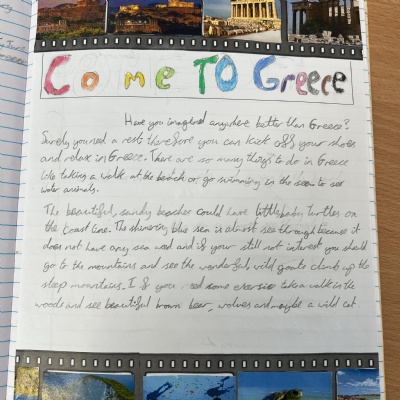 Come TO Greece
Have you imagined anywhere better than Greece?
Surely you need a rest therefore you can kick off your shoes
and relax in Greece. There are so many things to do in Greece
like taking a walk at the beach or go swimming in the sea to see
water animals.
The beautiful, sandy beaches could have little baby turtles on
the coast line. The shimering blue sea is almost see through because it
does not have any sea weed and if your still not interest you should
go to the mountains and see the wonderful, wild goats climb up the
steep mountains. I f you need some exersise take a walk in the
woods and see beautiful brown bear, wolves and maybe a wild cat.